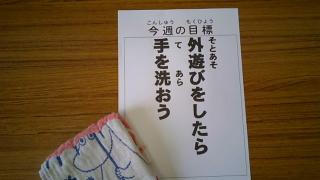 こんしゅう もくひょう
今週の目標
そとあそ
外遊びをしたら
て あら
手を洗おう